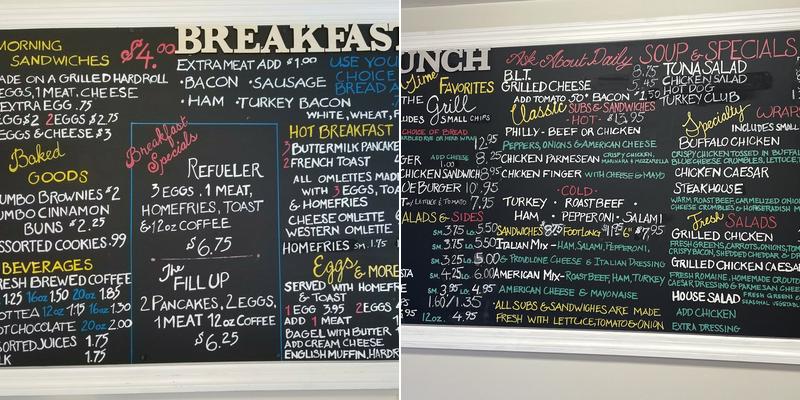 BREAKFAS
MORNING
SANDWICHES $4.00
ADE ON A GRILLED HARDROLL
EGGS, 1 MEAT, CHEESE
EXTRA EGG .75
EGG $2 2 EGGS $2.75
EGGS & CHEESE $3
Baked
GOODS
UMBO BROWNIES $2
UMBO CINNAMON
BUNS $2.25
SSORTED COOKIES .99
BEVERAGES
RESH BREWED COFFEE
1.25 16oz 1.50 20oz 1.85
OT TEA 12oz 1.15 16oz 1.30
OT CHOCOLATE 20oz 2.00
SORTED JUICES 1.75
LK 1.75
EXTRA MEAT ADD $1.00
•BACON •SAUSAGE
•HAM •TURKEY BACON
USE YOU
CHOICE
BREAD A
WHITE, WHEAT, F
Breakfast
Specials
REFUELER
3 EGGS, 1 MEAT,
HOMEFRIES, TOAST
& 12oz COFFEE
$6.75
The
FILL UP
2 PANCAKES, 2 EGGS,
1 MEAT 12oz COFFEE
$6.25
HOT BREAKFAST
3 BUTTERMILK PANCAKE
2 FRENCH TOAST
ALL OMLETTES MADE
WITH 3 EGGS, TOA
& HOMEFRIES
CHEESE OMLETTE
WESTERN OMLETTE
HOMEFRIES SM. 1.75
Eggs & MORE
SERVED WITH HOMEFR
& TOAST
1 EGG 3.95 2 EGGS
ADD 1 MEAT
BAGEL WITH BUTTER 1
ADD CREAM CHEESE
ENGLISH MUFFIN, HARDR
UNCH
Time FAVORITES
THE Grill
UDES & SMALL CHIPS
CHOICE OF BREAD
12.95
GER ADD CHEESE 8.25
CHICKEN SANDWICH 8.95
OE BURGER 10.95
W/ LETTUCE & TOMATO 7.95
ALADS & SIDES
SM. 3.75 5.50
SM. 3.75 5.50
SM. 3.25 5.00
SM. 4.25 6.00
SM. 3.95 4.95
1.60/1.35
12oz. 4.95
Ask About Daily SOUP & SPECIALS
B.L.T. 8.75
GRILLED CHEESE 5.45
ADD TOMATO .50 • BACON $1.50
TUNA SALAD
CHICKEN SALAD
HOT DOG
TURKEY CLUB
Classic SUBS & SANDWICHES
-HOT- $13.95
PHILLY - BEEF OR CHICKEN
PEPPERS, ONIONS & AMERICAN CHEESE
CHICKEN PARMESEAN CRISPY CHICKEN, MARINARA & MOZZARELLA
CHICKEN FINGER WITH CHEESE & MAYO
-COLD-
TURKEY • ROAST BEEF •
HAM • PEPPERONI • SALAMI
SANDWICHES FOOTLONG 6" $7.95
ITALIAN MIX - HAM, SALAMI, PEPPERONI,
& PROVOLONE CHEESE & ITALIAN DRESSING
AMERICAN MIX - ROAST BEEF, HAM, TURKEY
AMERICAN CHEESE & MAYONNAISE
•ALL SUBS & SANDWICHES ARE MADE
FRESH WITH LETTUCE, TOMATO & ONION
Specialty WRAPS
INCLUDES SMALL
BUFFALO CHICKEN
CRISPY CHICKEN TOSSED IN BUFFAL
BLUE CHEESE CRUMBLES, LETTUCE,
CHICKEN CAESAR
STEAKHOUSE
WARM, ROAST BEEF, CARMELIZED ON
CHEESE CRUMBLES & HORSERADISH M
Fresh SALADS
GRILLED CHICKEN
FRESH GREENS, CARROTS, ONIONS, TOM
CRISPY BACON, SHREDDED CHEDDAR & CR
GRILLED CHICKEN CAESAR
FRESH ROMAINE, HOMEMADE CROUTO
CAESAR DRESSING & PARMESAN CHEE
HOUSE SALAD FRESH GREENS &
SEASONAL VEGETABL
ADD CHICKEN
EXTRA DRESSING